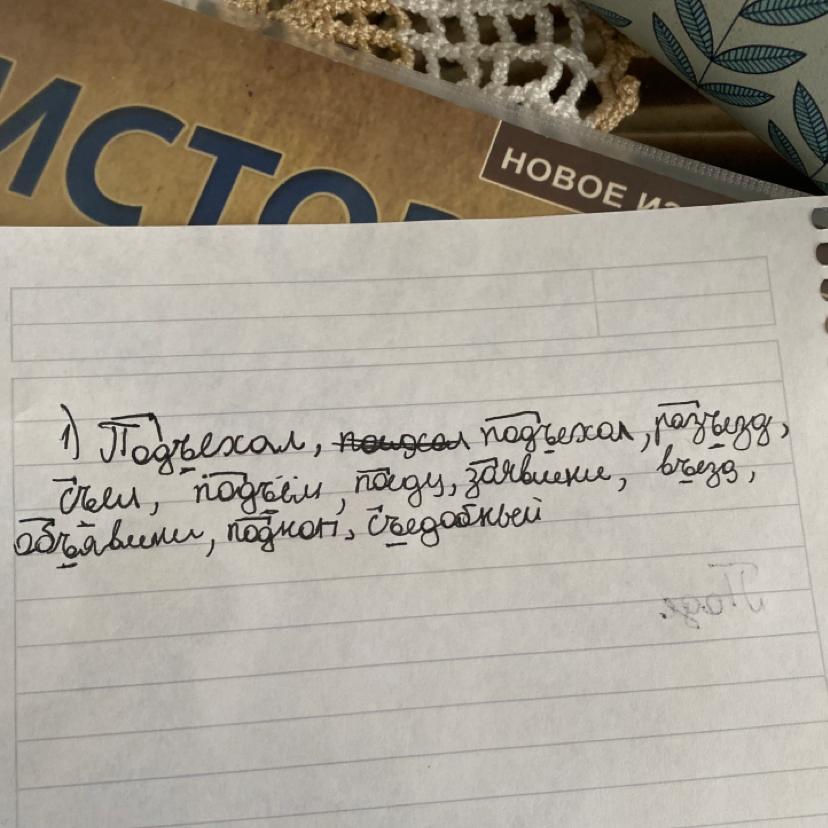 ИСТО
НОВОЕ ИЗ
1) Подъехал, подъехал, разъезд,
съел, подъём, поеду, заявили, въезд,
объявили, подкоп, съедобный